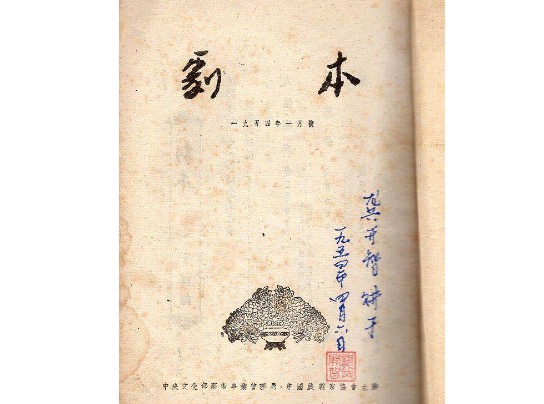 劇本
一九五四年一月號
龔开智 讲于
一九五四年四月六日
中央文化部藝術事業管理局·中國戲劇家協會主編